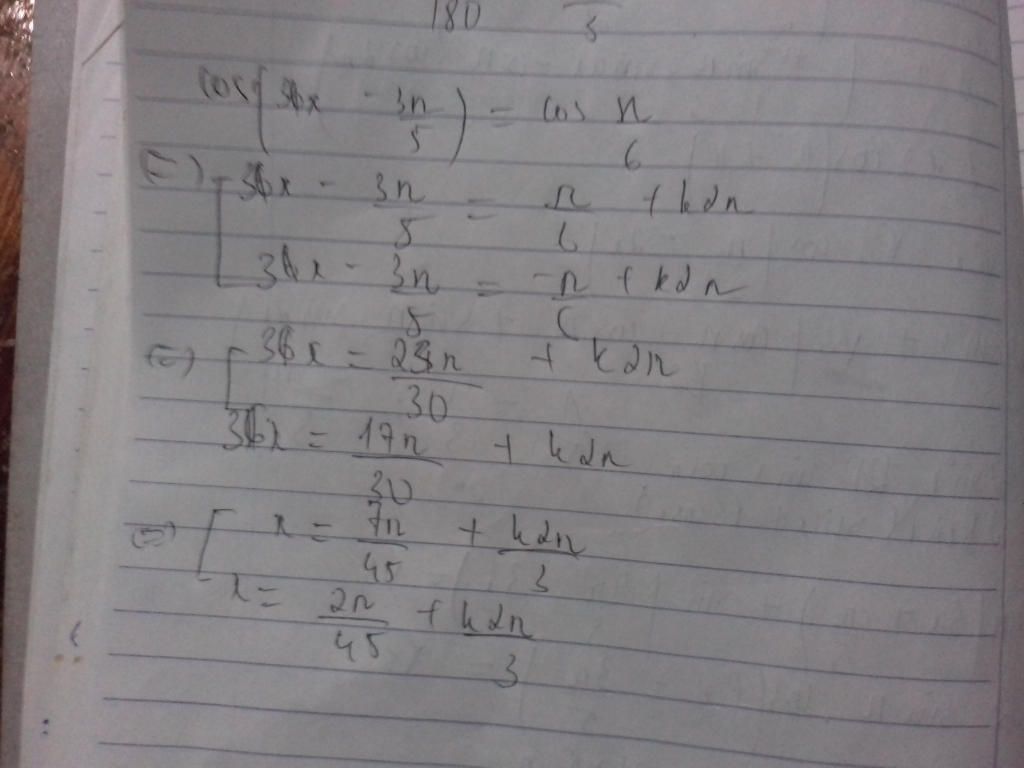 180 5
cos(36x - 3π/5) = cos π/6
(=) [ 36x - 3π/5 = π/6 + k2π
36x - 3π/5 = -π/6 + k2π
(=) [ 36x = 23π/30 + k2π
36x = 17π/30 + k2π
(=) [ x = 7π/45 + k2π/3
x = 2π/45 + k2π/3